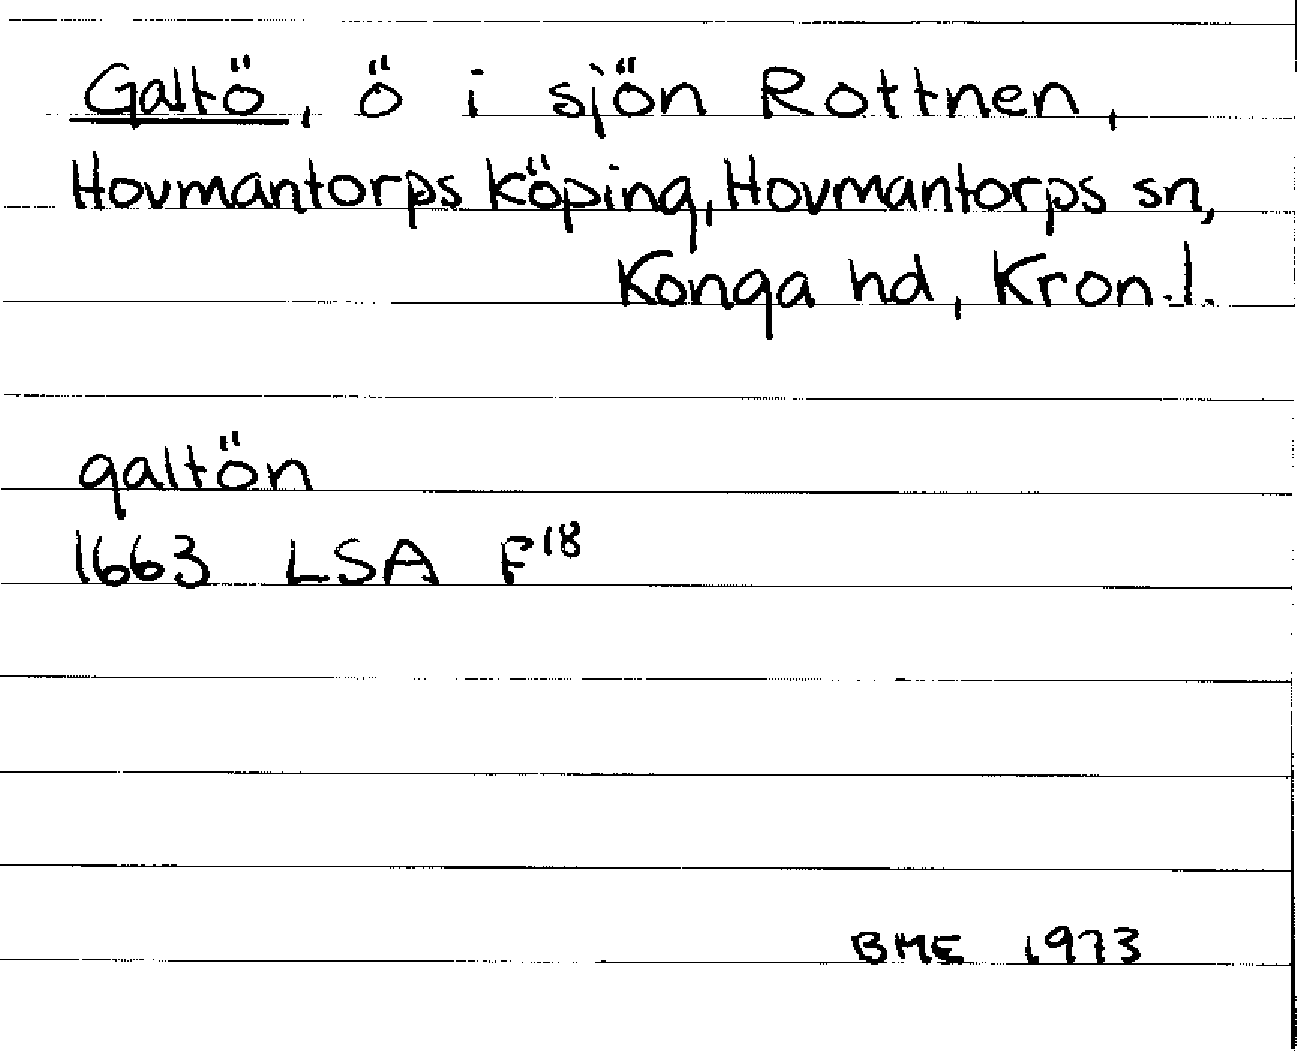 Galtö, ö i sjön Rottnen,
Hovmantorps köping, Hovmantorps sn,
Konga hd, Kron.l.
galtön
1663 LSA F18
BME 1973